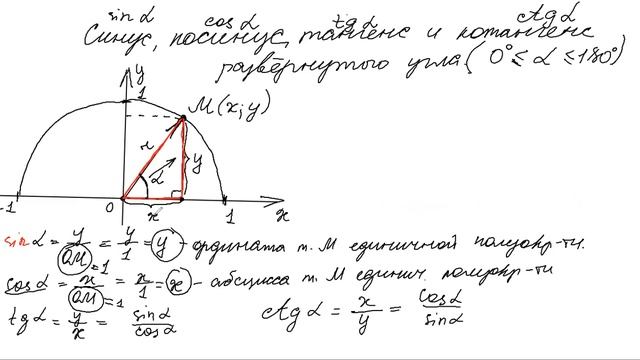 sin α cos α tg α ctg α
Синус, косинус, тангенс и котангенс
развёрнутого угла (0° ≤ α ≤ 180°)
y
1
M(x;y)
r
y
α
-1 0 x 1 x
sin α = y/OM = y/1 = y - ордината т. M единичной полуокр-ти.
OM = 1
cos α = x/OM = x/1 = x - абсцисса т. M единич. полуокр-ти
OM = 1
tg α = y/x = sin α/cos α
ctg α = x/y = cos α/sin α